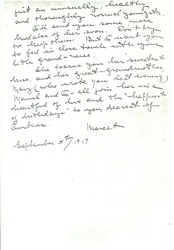 just an unusually healthy
and thoroughly normal youngster.
I'll send you some more
of her soon. Don't try
to keep them. But I want you
to feel in close touch with your
little grand-niece.
She sends you her sweetest
love, and her great-grandmother
Mary (who wrote you last evening)
and I all join her in a
heartful of love and the "happiest
of birthdays" to you dearest of
September 5th, 1917.